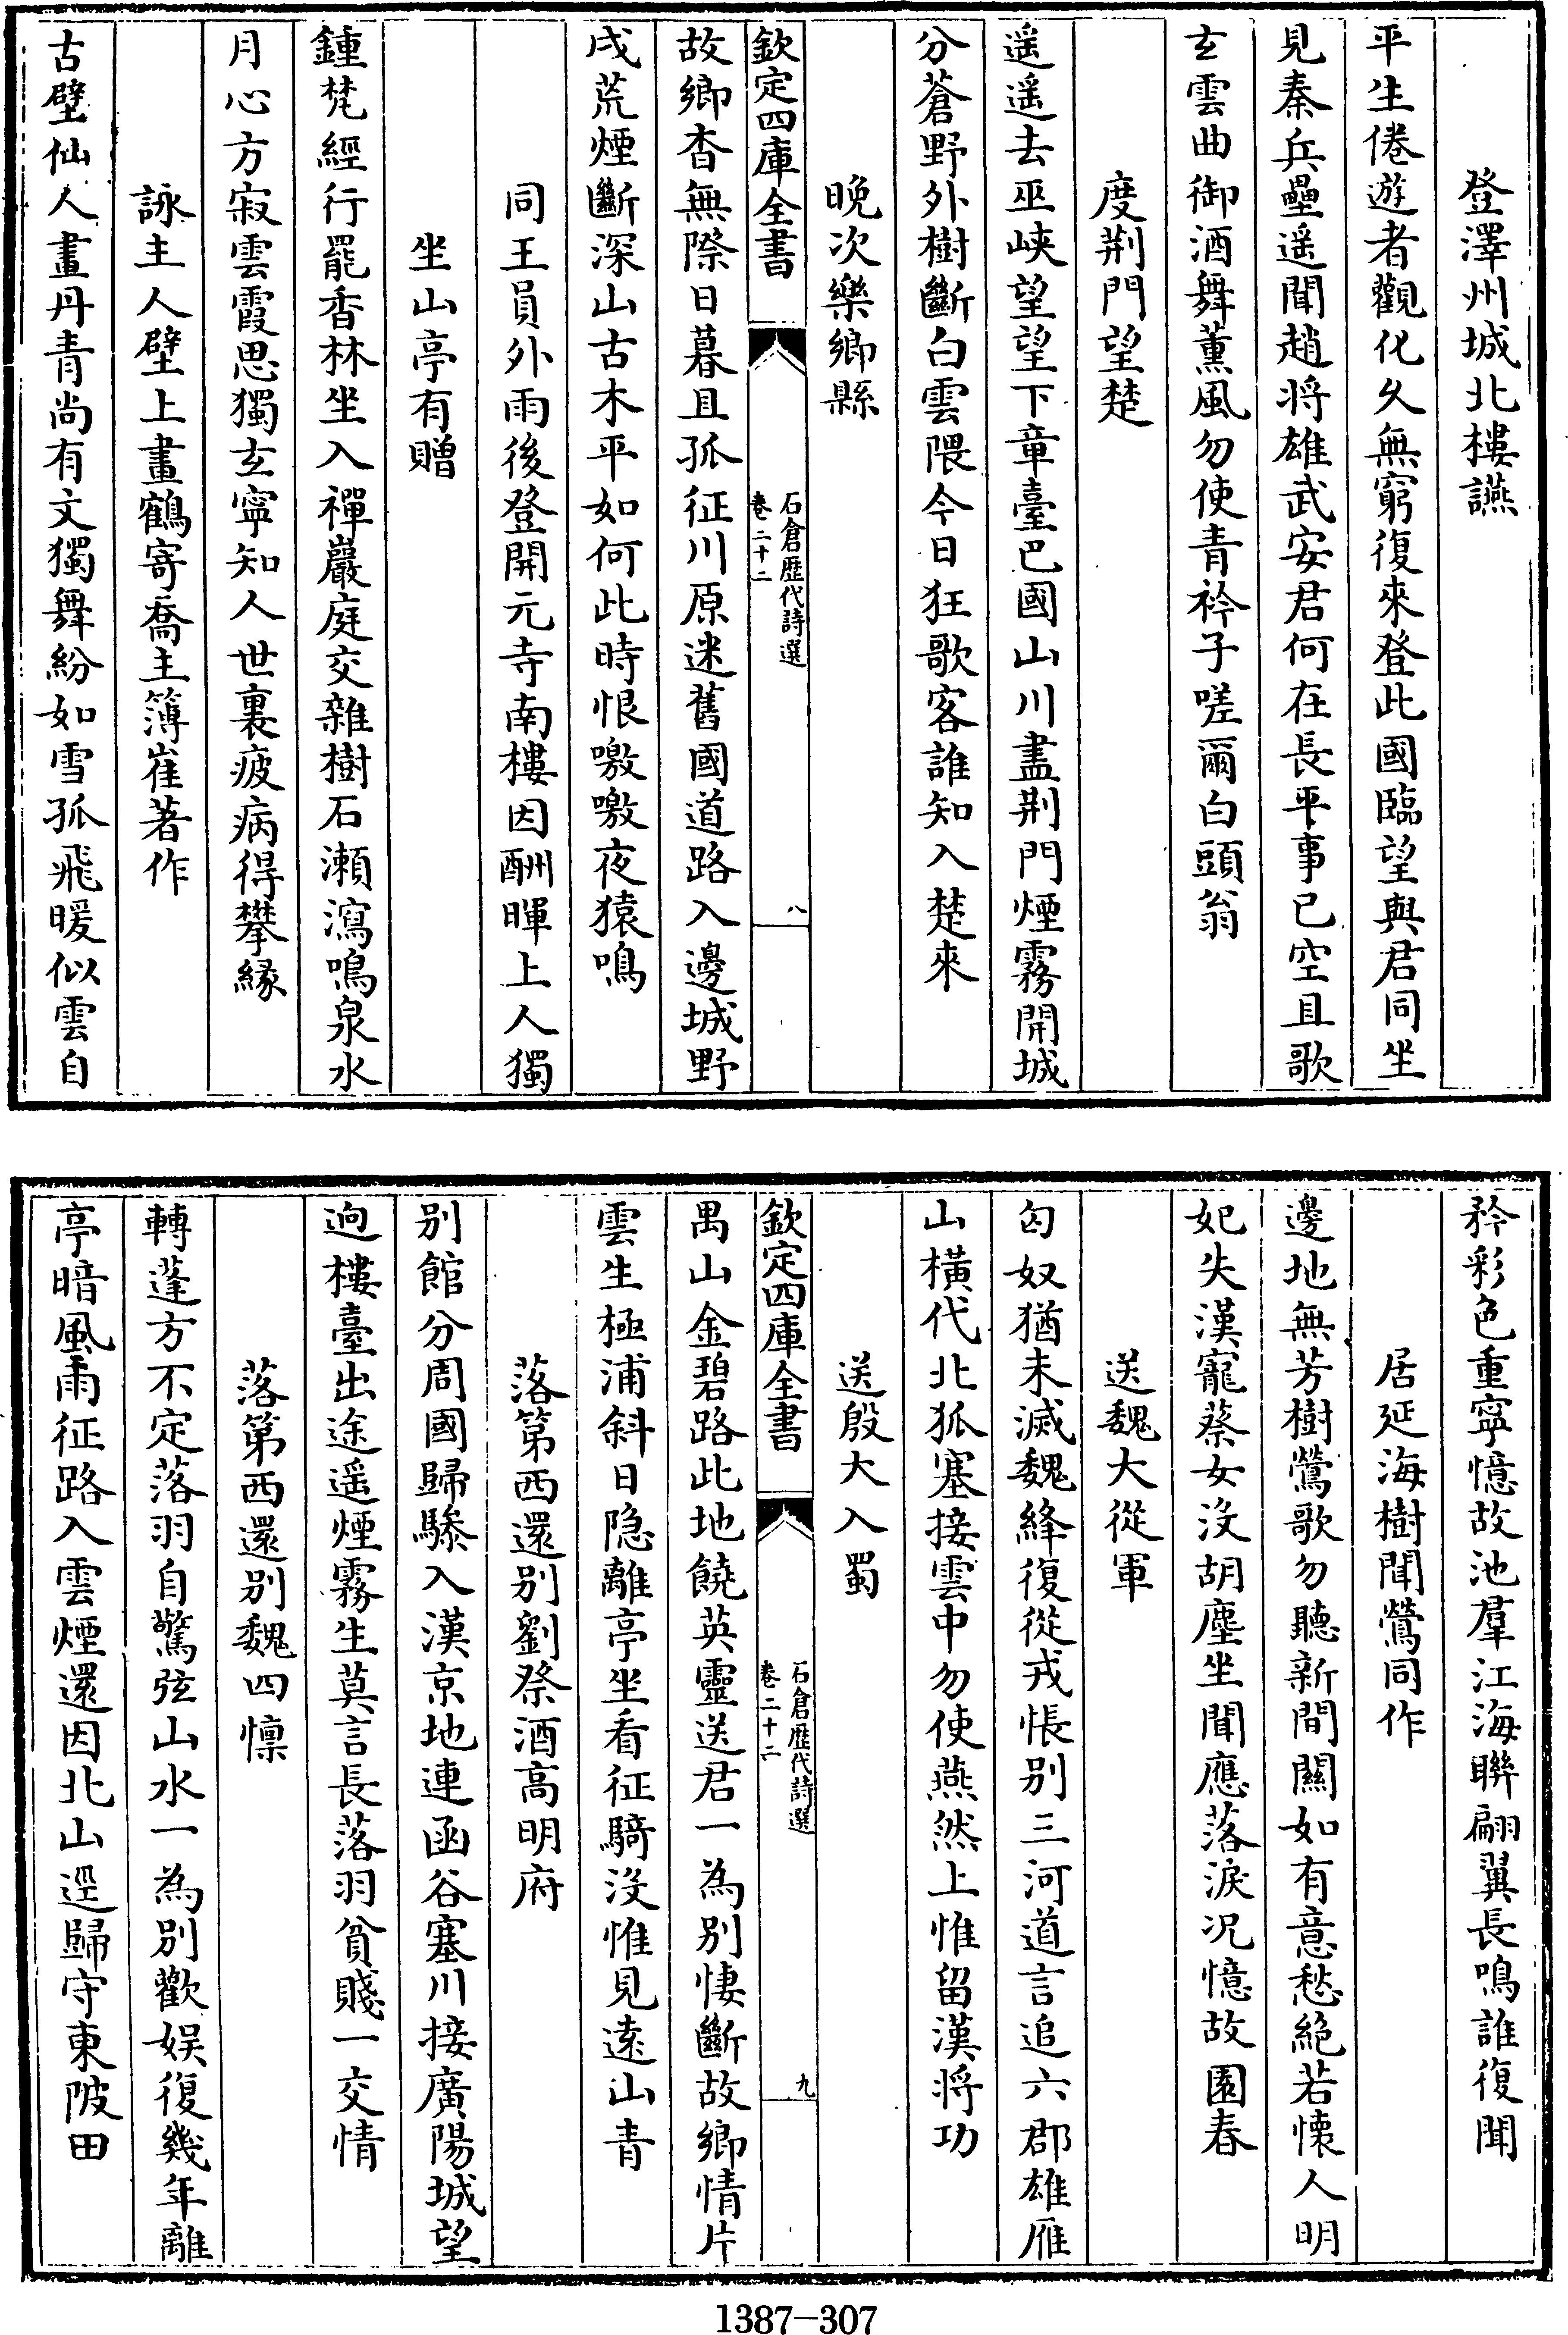 登澤州城北樓讌
平生倦遊者觀化久無窮復來登此國臨望與君同坐
見秦兵壘遥聞趙將雄武安君何在長平事已空且歌
玄雲曲御酒舞薫風勿使青衿子嗟爾白頭翁
度荆門望楚
遥遥去巫峽望望下章臺巴國山川盡荆門煙霧開城
分蒼野外樹斷白雲隈今日狂歌客誰知入楚來
晩次樂鄉縣
欽定四庫全書
石倉歴代詩選
卷二十二
八
故鄉杳無際日暮且孤征川原迷舊國道路入邊城野
戍荒煙斷深山古木平如何此時恨噭噭夜猿鳴
同王員外雨後登開元寺南樓因酬暉上人獨
坐山亭有贈
鍾梵經行罷香林坐入禪巖庭交雜樹石瀨瀉鳴泉水
月心方寂雲霞思獨玄寧知人世裏疲病得攀縁
詠主人壁上畫鶴寄喬主簿崔著作
古壁仙人畫丹青尚有文獨舞紛如雪孤飛暖似雲自
矜彩色重寧憶故池羣江海聯翩翼長鳴誰復聞
居延海樹聞鶯同作
邊地無芳樹鶯歌勿聽新間關如有意愁絶若懐人明
妃失漢寵蔡女没胡塵坐聞應落淚况憶故園春
送魏大從軍
匈奴猶未滅魏絳復從戎悵别三河道言追六郡雄雁
山横代北狐塞接雲中勿使燕然上惟留漢將功
送殷大入蜀
欽定四庫全書
石倉歴代詩選
卷二十二
九
禺山金碧路此地饒英靈送君一為别悽斷故鄉情片
雲生極浦斜日隐離亭坐看征騎没惟見遠山青
落第西還别劉祭酒高明府
别館分周國歸驂入漢京地連函谷塞川接廣陽城望
逈樓臺出途遥煙霧生莫言長落羽貧賤一交情
落第西還别魏四懍
轉蓬方不定落羽自驚弦山水一為别歡娱復幾年離
亭暗風雨征路入雲煙還因北山逕歸守東陂田
1387-307